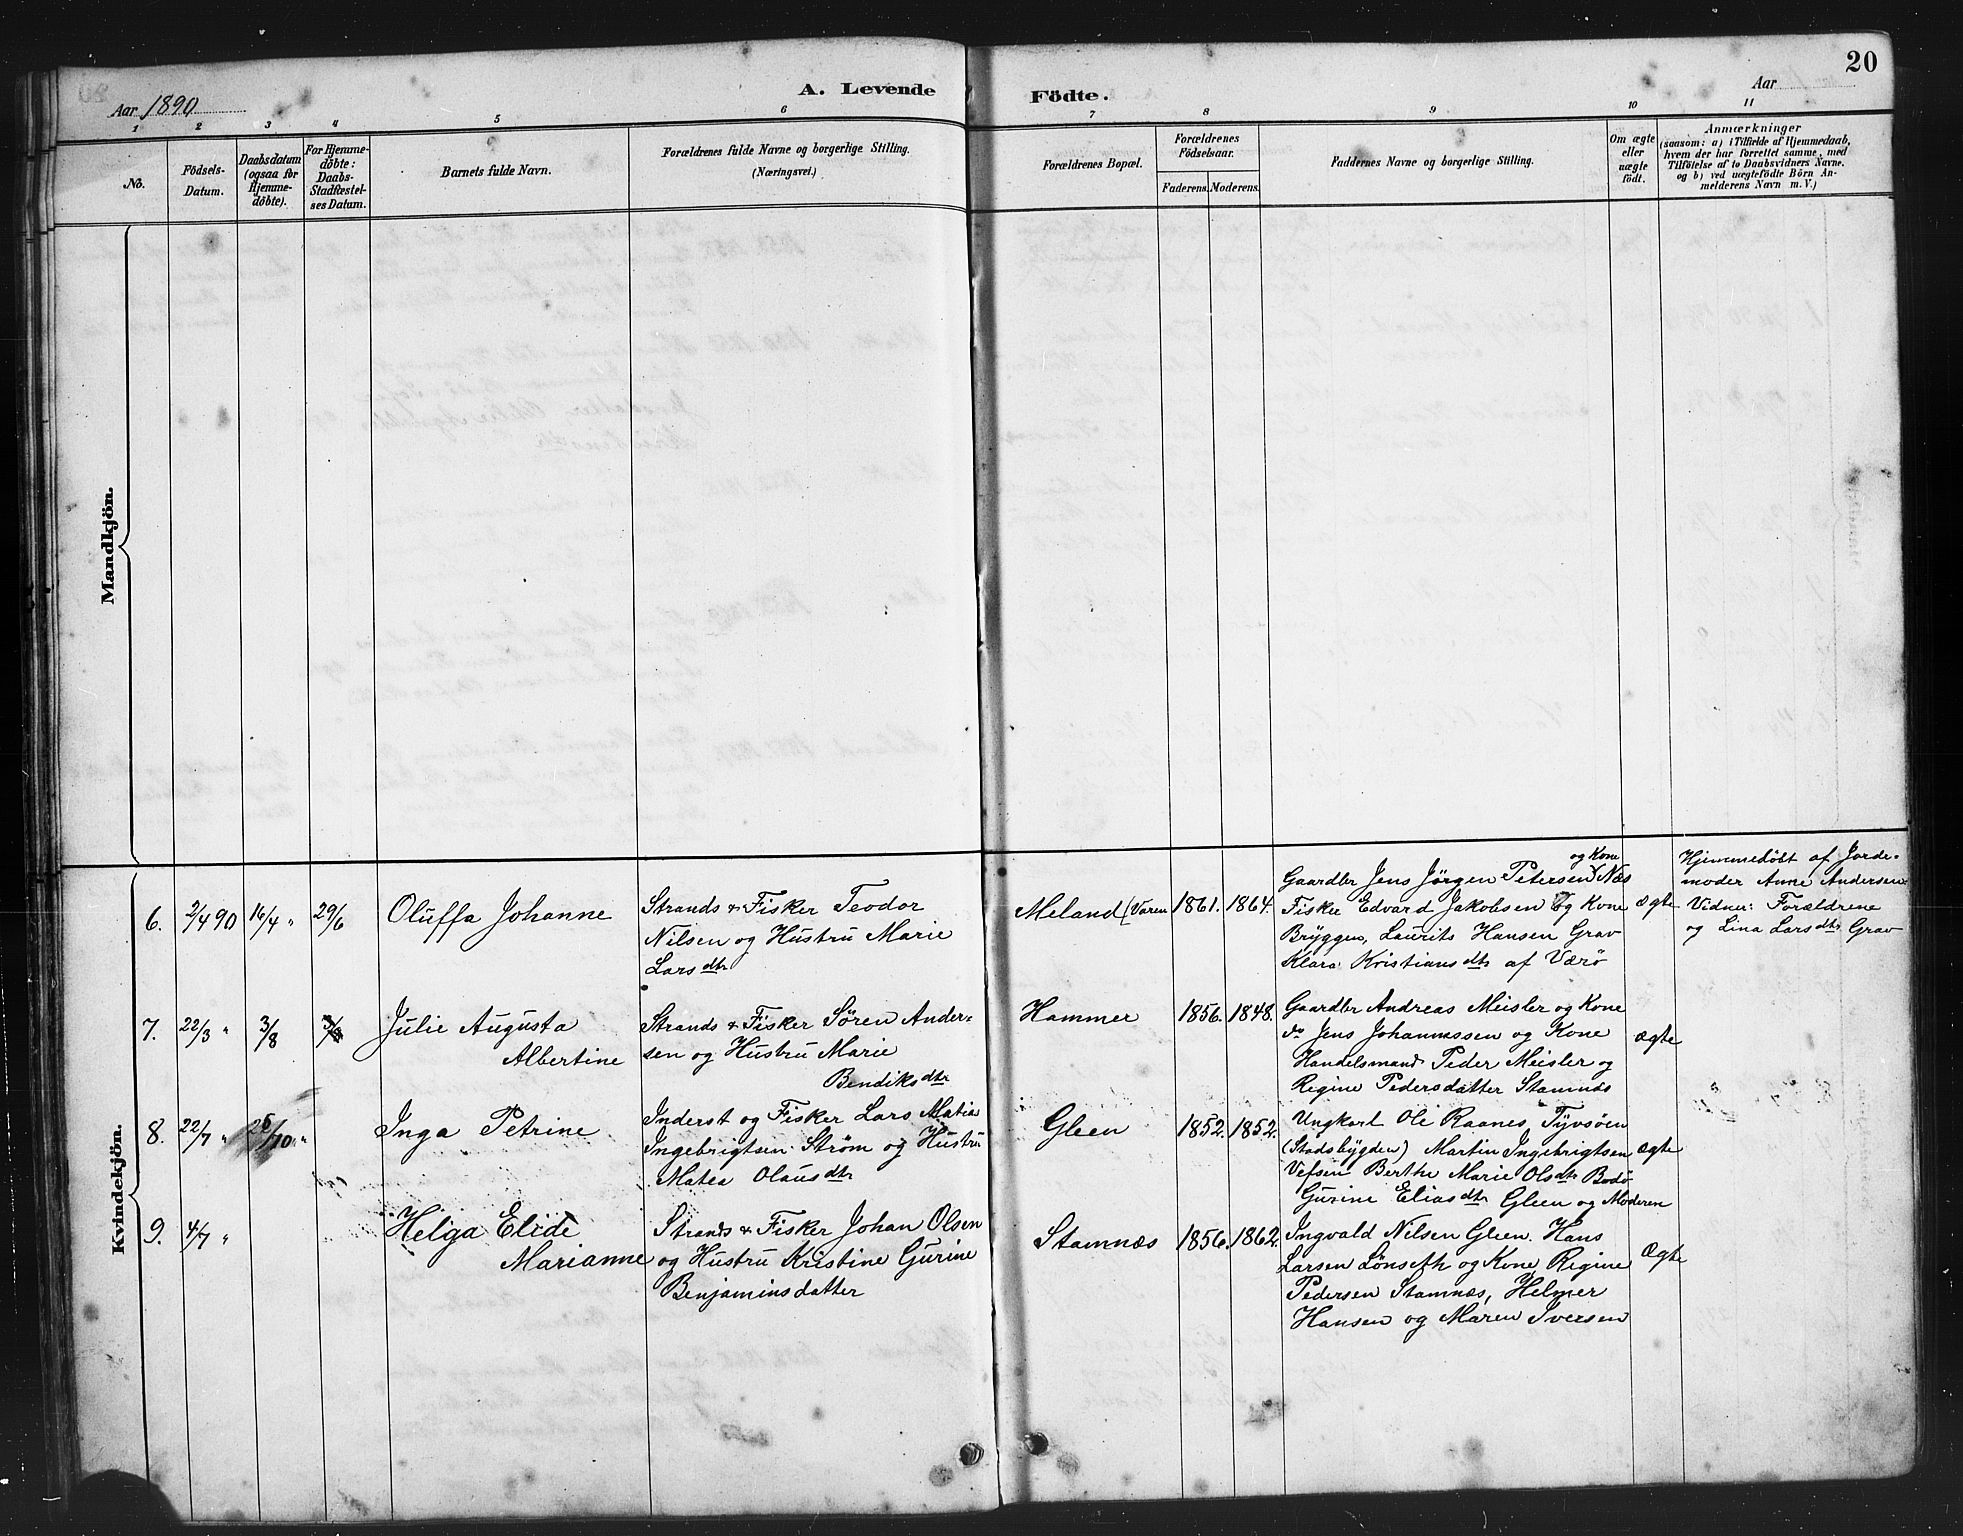 20
A. Levende Födte.
Aar 1890
Aar
1 2 3 4 5 6 7 8 9 10 11
No.
Födsels-Datum.
Daabsdatum (ogsaa for Hjemme-döbte).
For Hjemme-döbte: Daabs-Stadfæstel-ses Datum.
Barnets fulde Navn.
Forældrenes fulde Navne og borgerlige Stilling.
(Næringsvei.)
Forældrenes Bopæl.
Forældrenes Födselsaar.
Faderens. Moderens.
Faddernes Navne og borgerlige Stilling.
Om ægte eller uægte födt.
Anmærkninger
(saasom: a) i Tilfælde af Hjemmedaab,
hvem der har forrettet samme, med
Tilföielse af to Daabsvidners Navne.
og b) ved uægtefödte Börn An-
melderens Navn m. V.)
Mandkjön.
Kvindekjön.
6. 2/4 90 16/4 " 29/6 Oluffa Johanne
Strands & Fisker Teodor
Nilsen og Hustru Marie
Larsdtr
Meland (Varen 1861. 1864.
og Kone
Gaardbr Jens Jörgen Petersen Næs
Fisker Edvard Jakobsen og Kone
Bryggen, Laurits Hansen Grav
Klara Kristiansdtr af Værö
ægte
Hjemmedöbt af Jorde-
moder Anne Andersen
Vidner: Forældrene
og Lina Larsdtr Grav
7. 22/3 " 3/8 Julie Augusta
Albertine
Strands & Fisker Søren Ander-
sen og Hustru Marie
Bendiksdtr
Hammer 1856. 1848.
Gaardbr Andreas Meisler og Kone
do Jens Johannessen og Kone
Handelsmand Peder Meisler og
Regine Pedersdatter Stamnæs
ægte
8. 22/7 " Inga Petrine
Inderst og Fisker Lars Matias
Ingebrigtsen Strøm og Hustru
Matea Olausdtr
Gleen 1852. 1852.
Ungkarl Ole Raanes, Tyvsöen
(Stadsbygden) Martin Ingebrigtsen
Vefsen Berthe Marie Olsdtr Bodö
Gurine Eliasdtr Gleen og Moderen
ægte
9. 4/7 " Helga Elide
Marianne
Strands & Fisker Johan Olsen
og Hustru Kristine Gurine
Benjaminsdatter
Stamnæs 1856. 1862.
Ingvald Nilsen Gleen. Hans
Larsen Lönseth og Kone Regine
Pedersen Stamnæs, Helmer
Hansen og Maren Iversen
Ægte